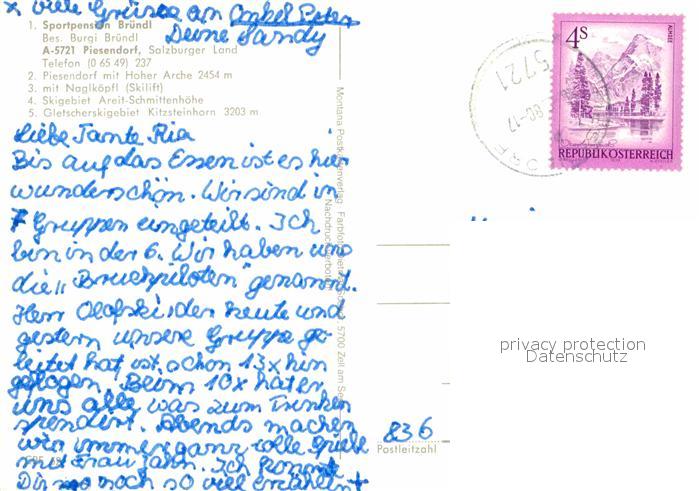 x viele Grüsse an Onkel Peter
Deine Sandy
1. Sportpension Bründl
Bes. Burgi Bründl
A-5721 Piesendorf, Salzburger Land
Telefon (0 65 49) 237
2. Piesendorf mit Hoher Arche 2454 m
3. mit Naglköpfl (Skilift)
4. Skigebiet Areit-Schmittenhöhe
5. Gletscherskigebiet Kitzsteinhorn 3203 m
Liebe Tante Ria
Bis auf das Essen ist es hier
wunderschön. Wir sind in
7 Gruppen eingeteilt. Ich
bin in der 6. Wir haben uns
die „Bruchpiloten" genannt.
Herr Olofski der heute und
gestern unsere Gruppe ge
leitet hat ist schon 13x hin
geflogen. Beim 10x hat er
uns alle was zum Trinken
spendiert. Abends machen
wir immer ganz tolle Spiele
mit Frau Jahn. Ich könnte
Dir noch so viel erzählen +
Montana Postkartenverlag
5700 Zell am See
Nachdruck verboten
4 S
ALMSEE
REPUBLIK ÖSTERREICH
5721
privacy protection
Datenschutz
836
Postleitzahl